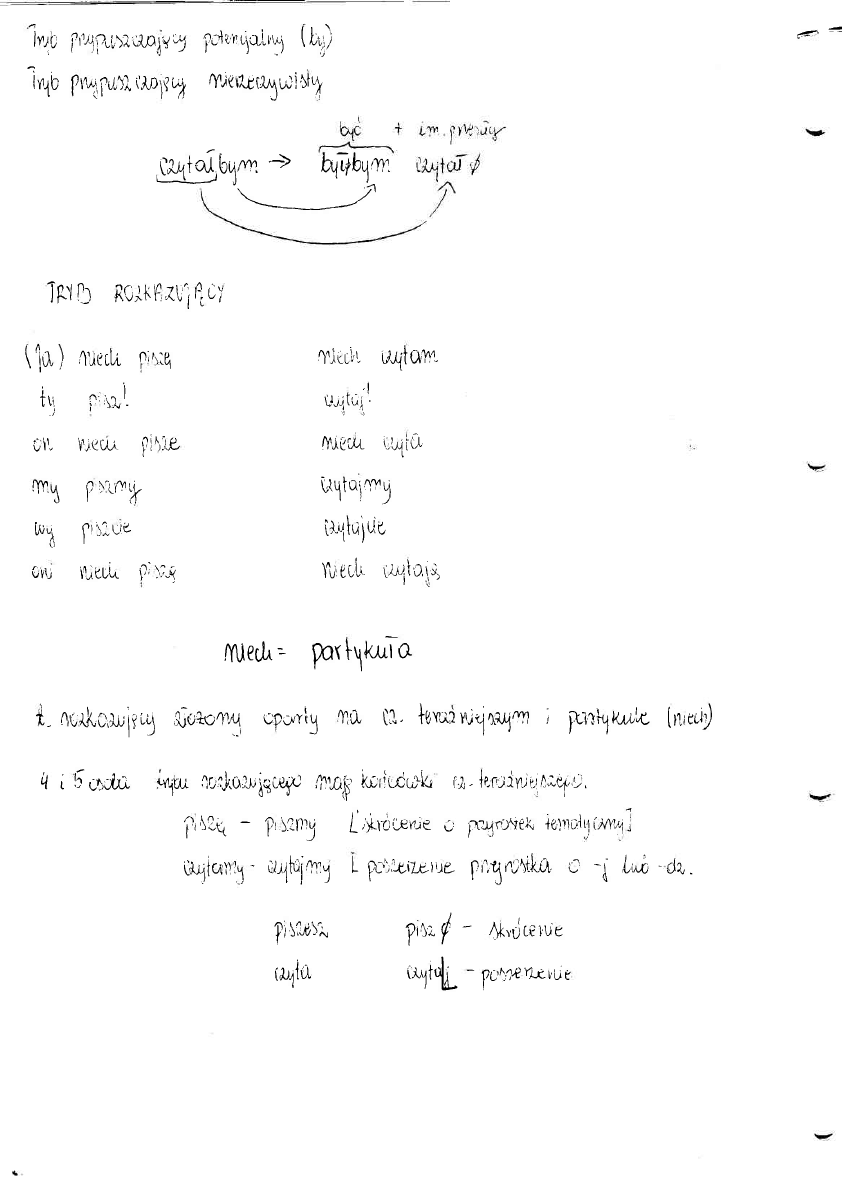 Tryb przypuszczający potencjalny (by)
Tryb przypuszczający nierzeczywisty
być + im. przeszły
czytałbym → byłbym czytał ø
TRYB ROZKAZUJĄCY
(Ja) niech piszę niech czytam
ty pisz! czytaj!
on niech pisze niech czyta
my piszmy czytajmy
wy piszcie czytajcie
oni niech piszą niech czytają
niech = partykuła
t. rozkazujący złożony oparty na cz. teraźniejszym i partykule (niech)
4 i 5 osoba trybu rozkazującego mają końcówki cz. teraźniejszego.
piszę - piszmy [skrócenie o przyrostek tematyczny]
czytamy - czytajmy [ poszerzenie przyrostka o -j lub -dz.
piszesz pisz ø - skrócenie
czyta czytaj - poszerzenie